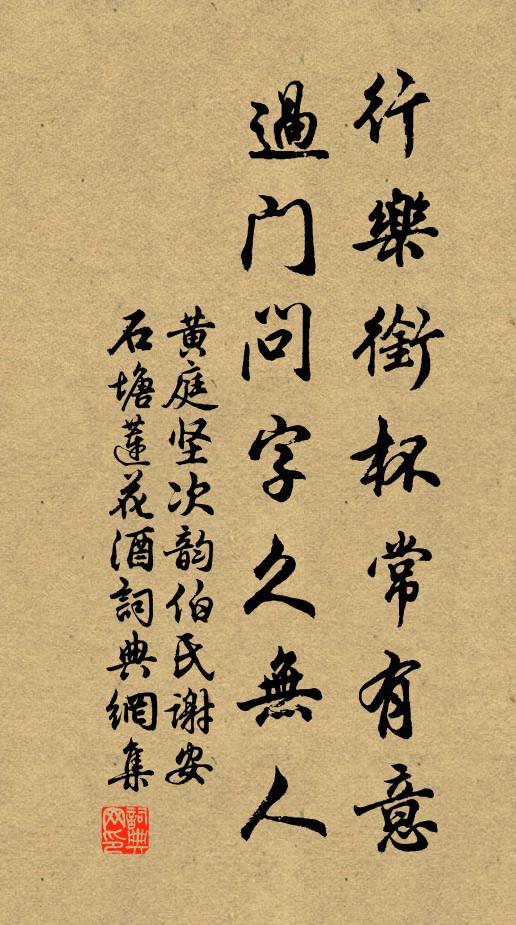 行樂銜杯常有意
過门问字久無人
黄庭坚次韵伯氏谢安
石塘莲花酒詞典網集
詞典网印